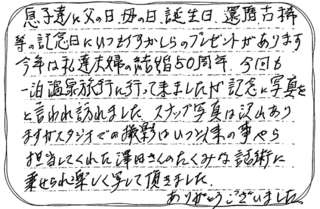 息子達に父の日、母の日、誕生日、還暦、古稀
等の記念日にいつも何かしらのプレゼントがあります
今年は私達夫婦の結婚50周年、今回も
一泊温泉旅行に行って来ましたが記念に写真を
と言われ訪れました。スナップ写真は沢山あり
ますがスタジオでの撮影はいつ以来の事やら
担当してくれた澤田さんのたくみな話術に
乗せられ楽しく写して頂きました
ありがとうございました